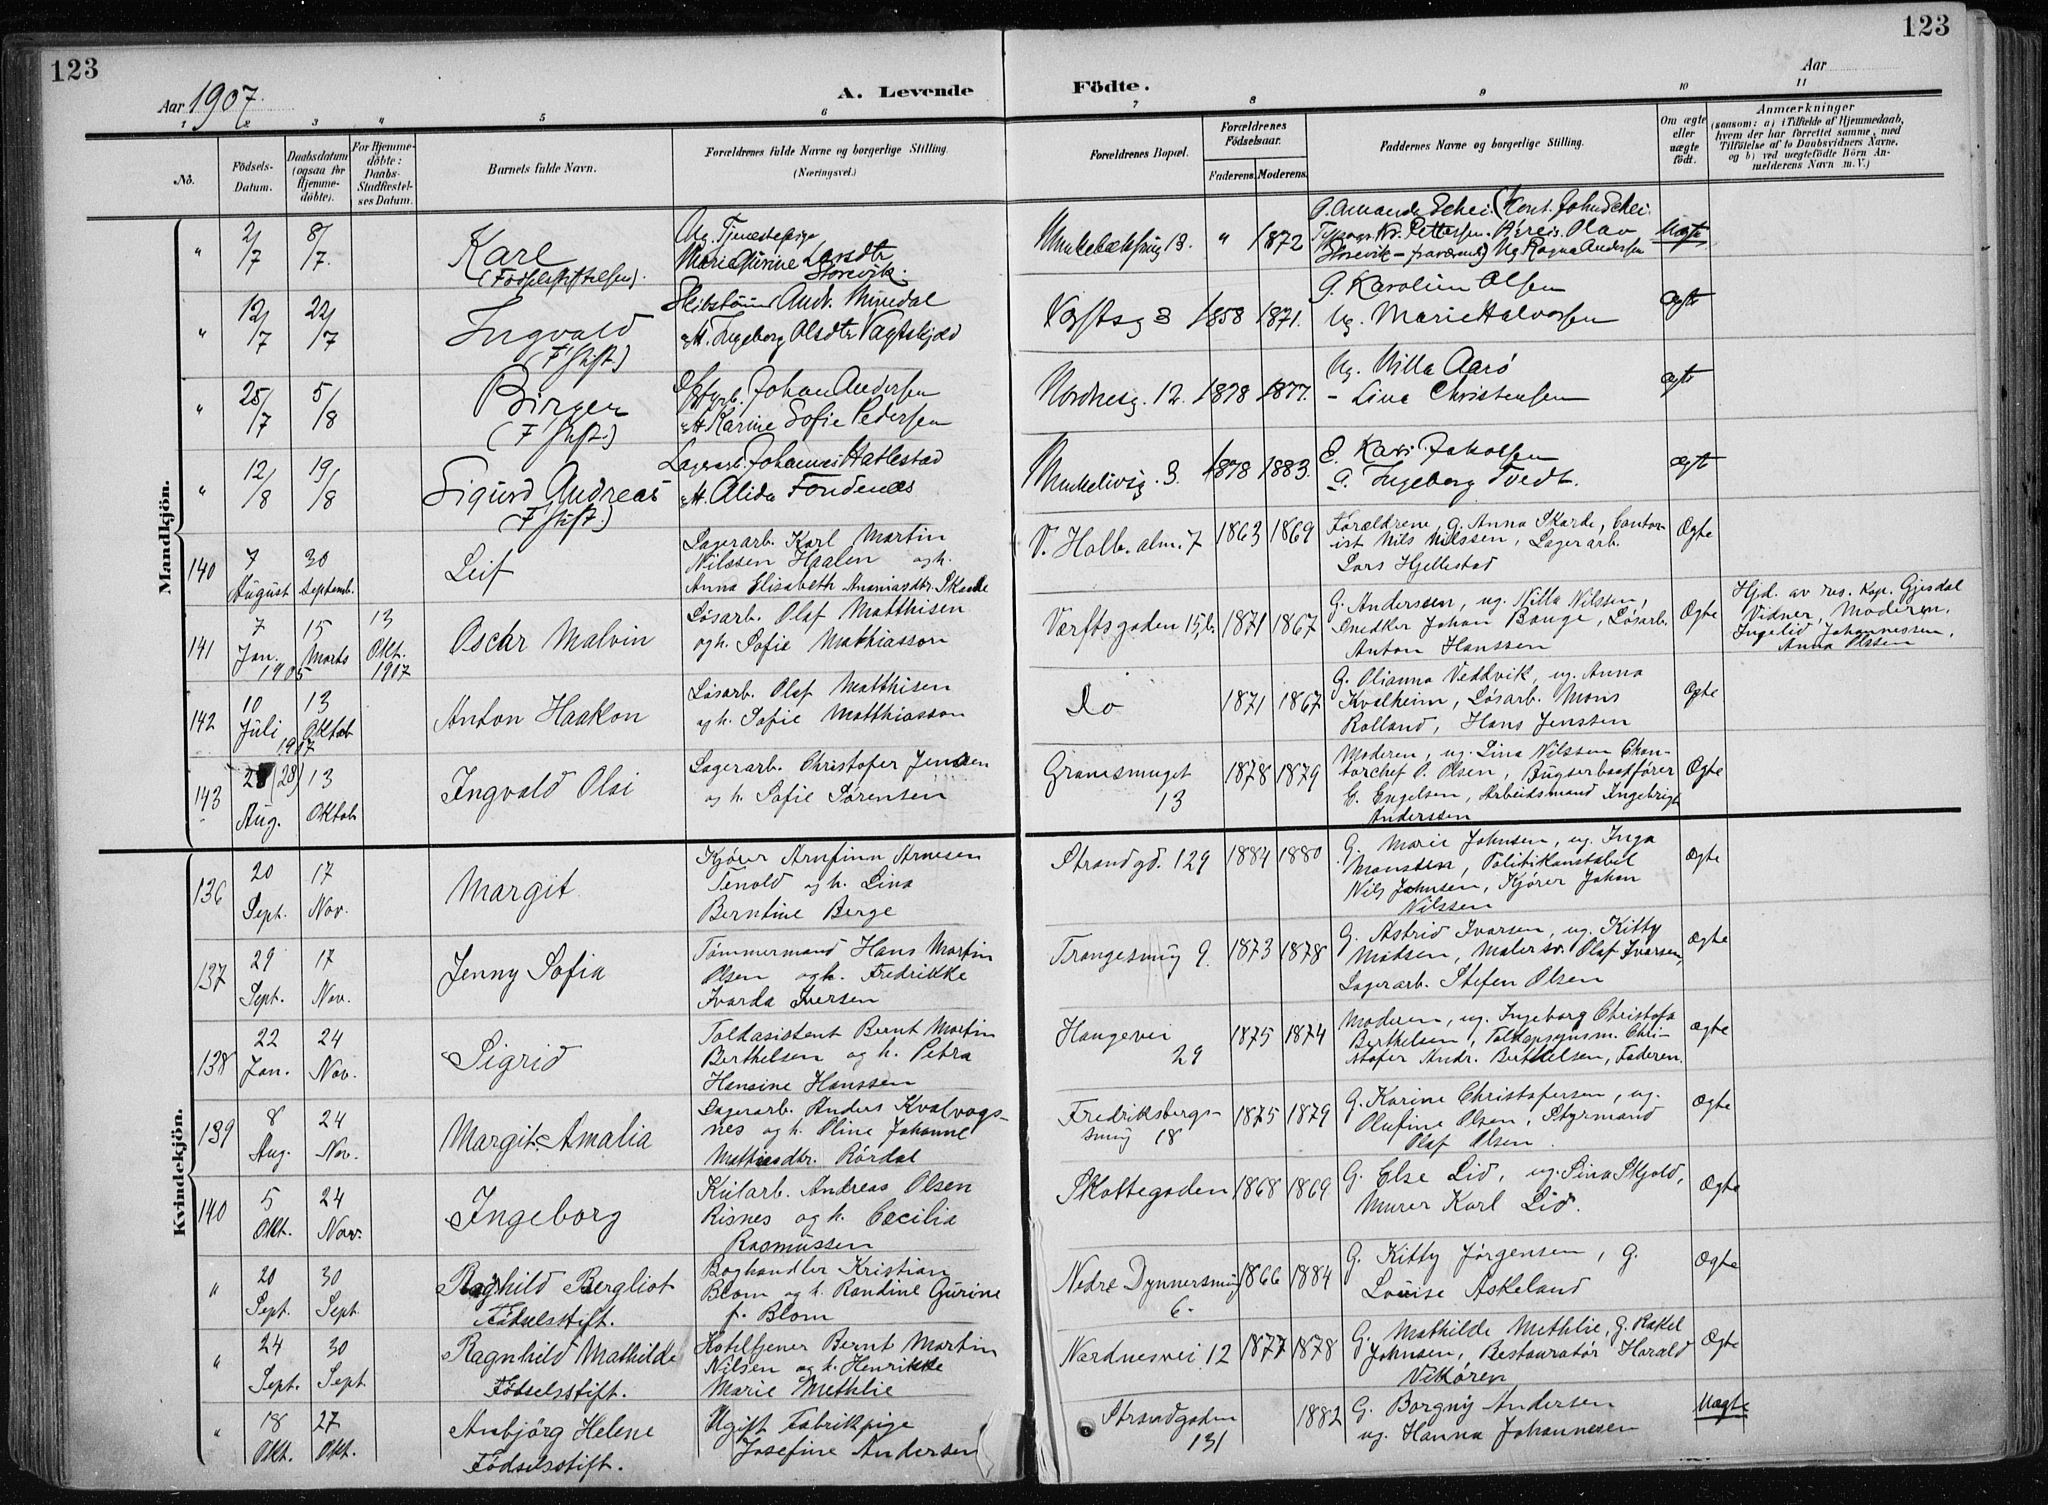 123
123
Aar 1907.
A. Levende
Födte.
Aar
1
2
3
4
5
6
7
8
9
10
11
No.
Födsels-
Datum.
Daabsdatum
(ogsaa for
Hjemme-
döbte).
For Hjemme-
döbte:
Daabs-
Stadfæstel-
ses Datum.
Barnets fulde Navn.
Forældrenes fulde Navne og borgerlige Stilling.
(Næringsvei.)
Forældrenes Bopæl.
Forældrenes
Födselsaar.
Faderens.
Moderens.
Faddernes Navne og borgerlige Stilling.
Om ægte
eller
uægte
födt.
Anmærkninger
(saasom: a) i Tilfælde af Hjemmedaab,
hvem der har forrettet samme, med
Tilföielse af to Daabsvidners Navne,
og b) ved uægtefödte Börn An-
melderens Navn m. V.)
Mandkjön.
" 2/7 8/7. Karl
(Födselsstiftelsen).
Ug. Tjenestepige
Marie Gurine Larsdtr
Storevik.
13. " 1872
P. Amanda Schei (Kont. John Schei.
Typogr. Pettersen. Olav
Storevik – fraværende) Ug Ragna Andersen
Uægte
" 12/7 22/7 Ingvald
(F. stift)
Andr. Minedal
H. Ingeborg Olsdtr Vagtskjold
Værftsg 3 1858 1871.
G. Karoline Olsen
Ug. Marie Halvorsen
Ægte
" 25/7 5/8 Birger
(F. stift.)
Johan Andersen
H Karine Sofie Pedersen
Nordnesg. 12. 1878 1877.
Ug. Milla Aarö
– Lina Christensen
Ægte
" 12/8 19/8 Sigurd Andreas
(F. stift.)
Lagerarb. Johannes Hatlestad
H. Alida Fondenæs
Munkelivsg. 3. 1878 1883.
E. Kari Jakobsen
G. Ingeborg Tvedt.
Ægte
140 7 August 30 Septemb. Leif
Lagerarb. Karl Martin
Nilssen Haalen og h.
Anna Elisabeth Ananiasdtr. Skaade
V. Holb. alm. 7 1863 1869
Forældrene, G. Anna Skarde, Contor-
ist Nils Nilssen, Lagerarb.
Lars Hjellestad
Ægte
141 7 Jan. 1905 15 Marts 13 Okt. 1907 Oscar Malvin
Løsarb. Olaf Matthisen
og h. Sofie Mathiasson
Værftsgaden 15, b. 1871 1867
G. Anderssen, ug. Nilla Nilssen,
Snedker Johan Bauge, Løsarb.
Anton Hanssen
Ægte
Hjd. av res. Kap. Gjesdal
Vidner, Moderen,
Ingelid Johannessen,
Anna Olssen
142 10 Juli 1907 13 Oktob Anton Haakon
Løsarb. Olaf Matthisen
og h. Sofie Matthiasson
Do 1871 1867
G. Olianna Veddvik, ug. Anna
Kvalheim, Løsarb. Mons
Rolland, Hans Jenssen
Ægte
143 28 (28) Aug. 13 Oktob Ingvald Olai
Lagerarb. Christofer Jensen
og h. Sofie Sørensen
Granesmuget
13
1878 1879
Moderen, ug. Lina Nilssen Chan-
torchef O. Olsen, Bugserbaatfører
E. Engelsen, Arbeidsmand Ingebrigt
Anderssen
Ægte
Kvindekjön.
136 20 Sept. 17 Nov. Margit
Kjører Arnfinn Arnesen
Tenold og h. Lina
Berntine Berge
Strandgd. 129 1884 1880
G. Marie Johnsen, ug. Inga
Monssen, Politikonstabel
Nils Johnsen, Kjører Johan
Nilssen
Ægte
137 29 Sept. 17 Nov. Jenny Sofia
Tømmermand Hans Martin
Olsen og h. Fredrikke
Ivarda Iversen
Trangesmug 9. 1873 1878
G. Astrid Ivarsen, ug. Kitty
Madsen, Malersv. Olaf Ivarsen,
Lagerarb. Stefen Olsen
Ægte
138 22 Jan. 24 Nov. Sigrid
Toldasistent Bernt Martin
Berthelsen og h. Petra
Hansine Hanssen
Haugevei
29
1875 1874
Moderen, ug. Ingeborg Christofa
Berthelsen, Toldopsynsm. Chri-
stofer Andr. Berthelsen, Faderen.
Ægte
139 8 Aug. 24 Nov. Margit Amalia
Lagerarb. Anders Kvalvogs-
nes og h. Oline Johanne
Mathiasdtr. Rördal
Fredriksbergs-
smug 18
1875 1879
G. Karine Christofersen, ug.
Olufine Olsen, Styrmand
Olaf Olsen
Ægte
140 5 Okt. 24 Nov. Ingeborg
Kularb. Andreas Olsen
Risnes og h. Cæcilia
Rasmussen
Skottegaden 1868 1869
G. Else Lid, ug. Lina Skjold,
Murer Karl Lid.
Ægte
" 20 Sept. 30 Sept. Ragnhild Bergliot
Fødselsstift.
Boghandler Kristian
Blom og h. Randine Gurine
f. Blom
Nedre Dynnersmug
6.
1866 1884
G. Kitty Jørgensen, G.
Louise Askeland
Ægte
" 24 Sept. 30 Sept. Ragnhild Mathilde
Fødselsstift.
Hoteltjener Bernt Martin
Nilsen og h. Henrikke
Marie Methlie
Nordnesvei 12 1877 1878
G. Mathilde Methlie, G. Rakel
Johnsen, Restauratør Harald
Vikøren
Ægte
" 18 Okt. 27 Okt. Ansbjörg Helene
Fødselsstift.
Ugift Fabrikpige
Josefine Andersen
Strandgaden
131
1882
G. Borgny Andersen
ug. Hanna Johannesen
Uægte